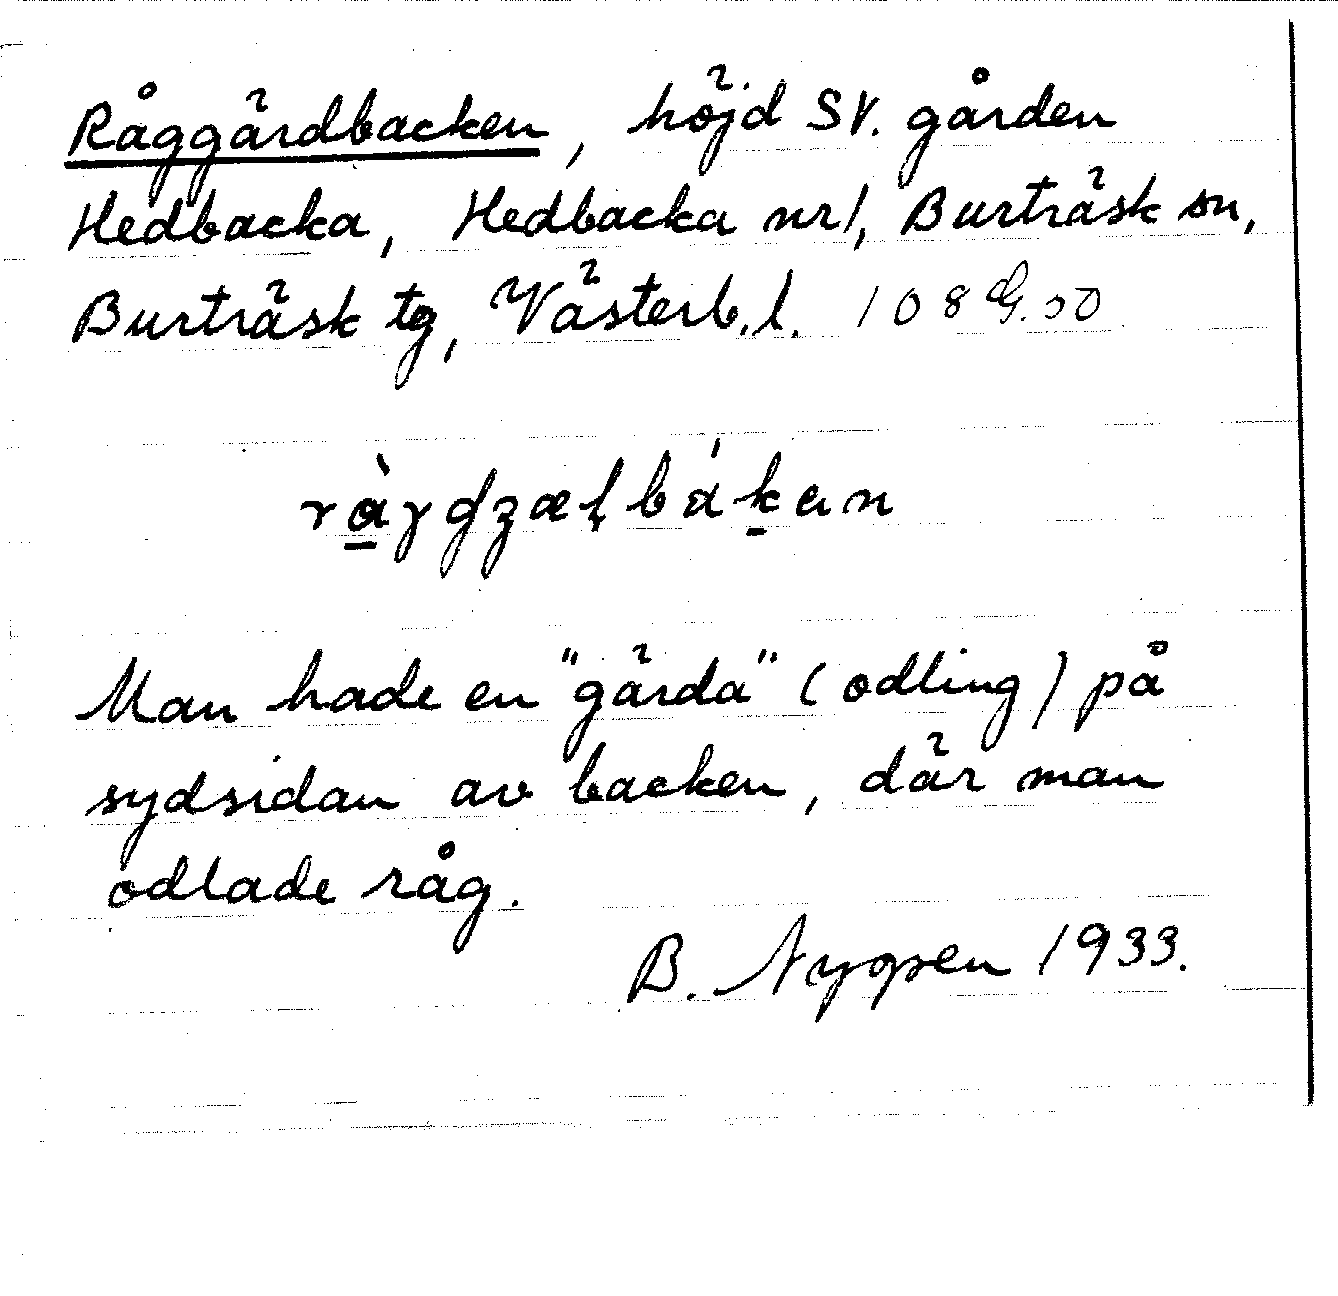 Råggärdbacken, höjd SV. gården
Hedbacka, Hedbacka nr 1, Burträsk sn,
Burträsk tg, Västerb. l. 108
Man hade en "gärda" (odling) på
sydsidan av backen, där man
odlade råg.
B. 1933.